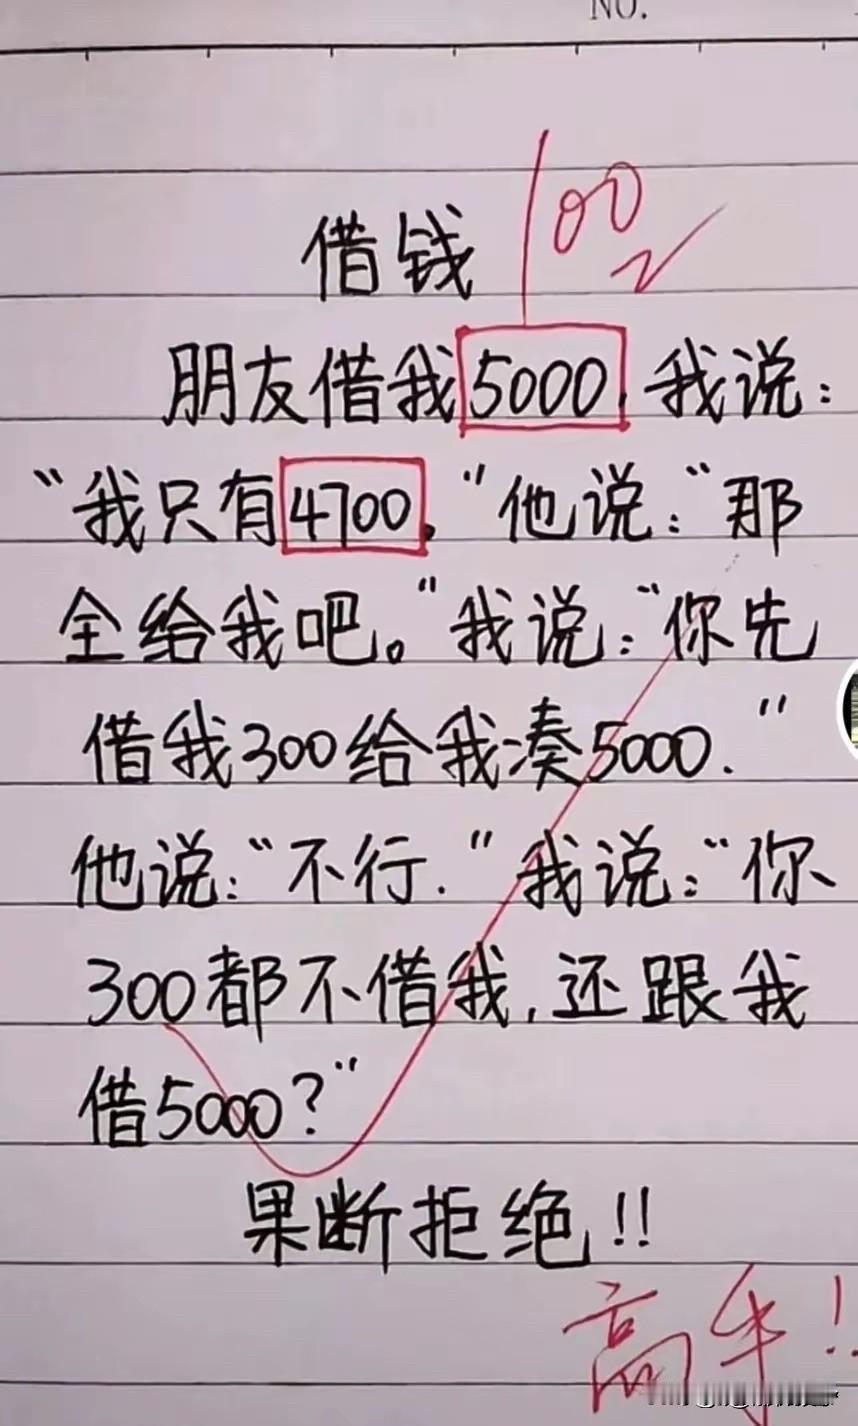 NO.
100
借钱
朋友借我5000，我说：
“我只有4700，”他说：“那
全给我吧。”我说：“你先
借我300给我凑5000.”
他说：“不行.”我说：“你
300都不借我，还跟我
借5000？”
果断拒绝!!
高手!!